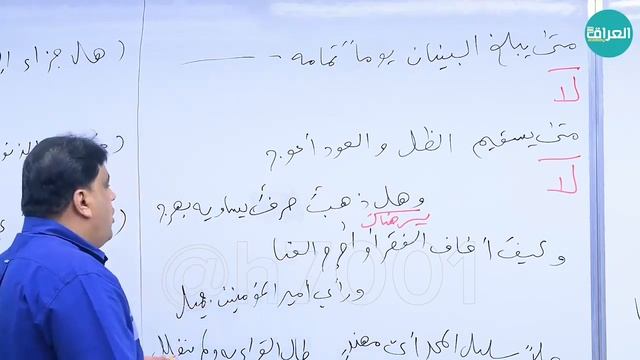 العراقية
متى يبلغ البنيان يوماً تمامه -
لا
متى يستقيم الظل والعود أعوج
لا
وهل ذهبٌ صرفٌ يساويه بهرج
ليس هناك
وكيف أخاف الفقر أو أحرم الغنا
ورأي أمير المؤمنين جميل
سليل المجد أي مهند
( هل جزاء
@h7001